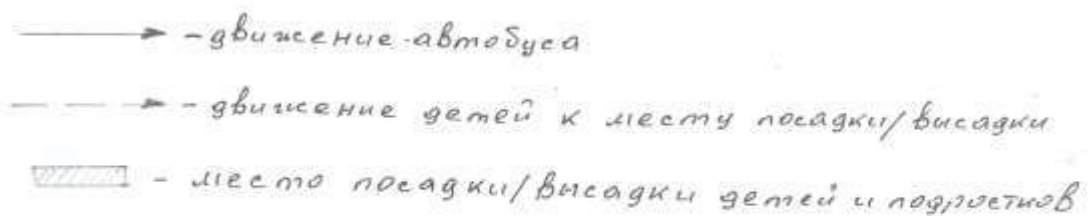 - движение автобуса
- движение детей к месту посадки/высадки
- место посадки/высадки детей и подростков